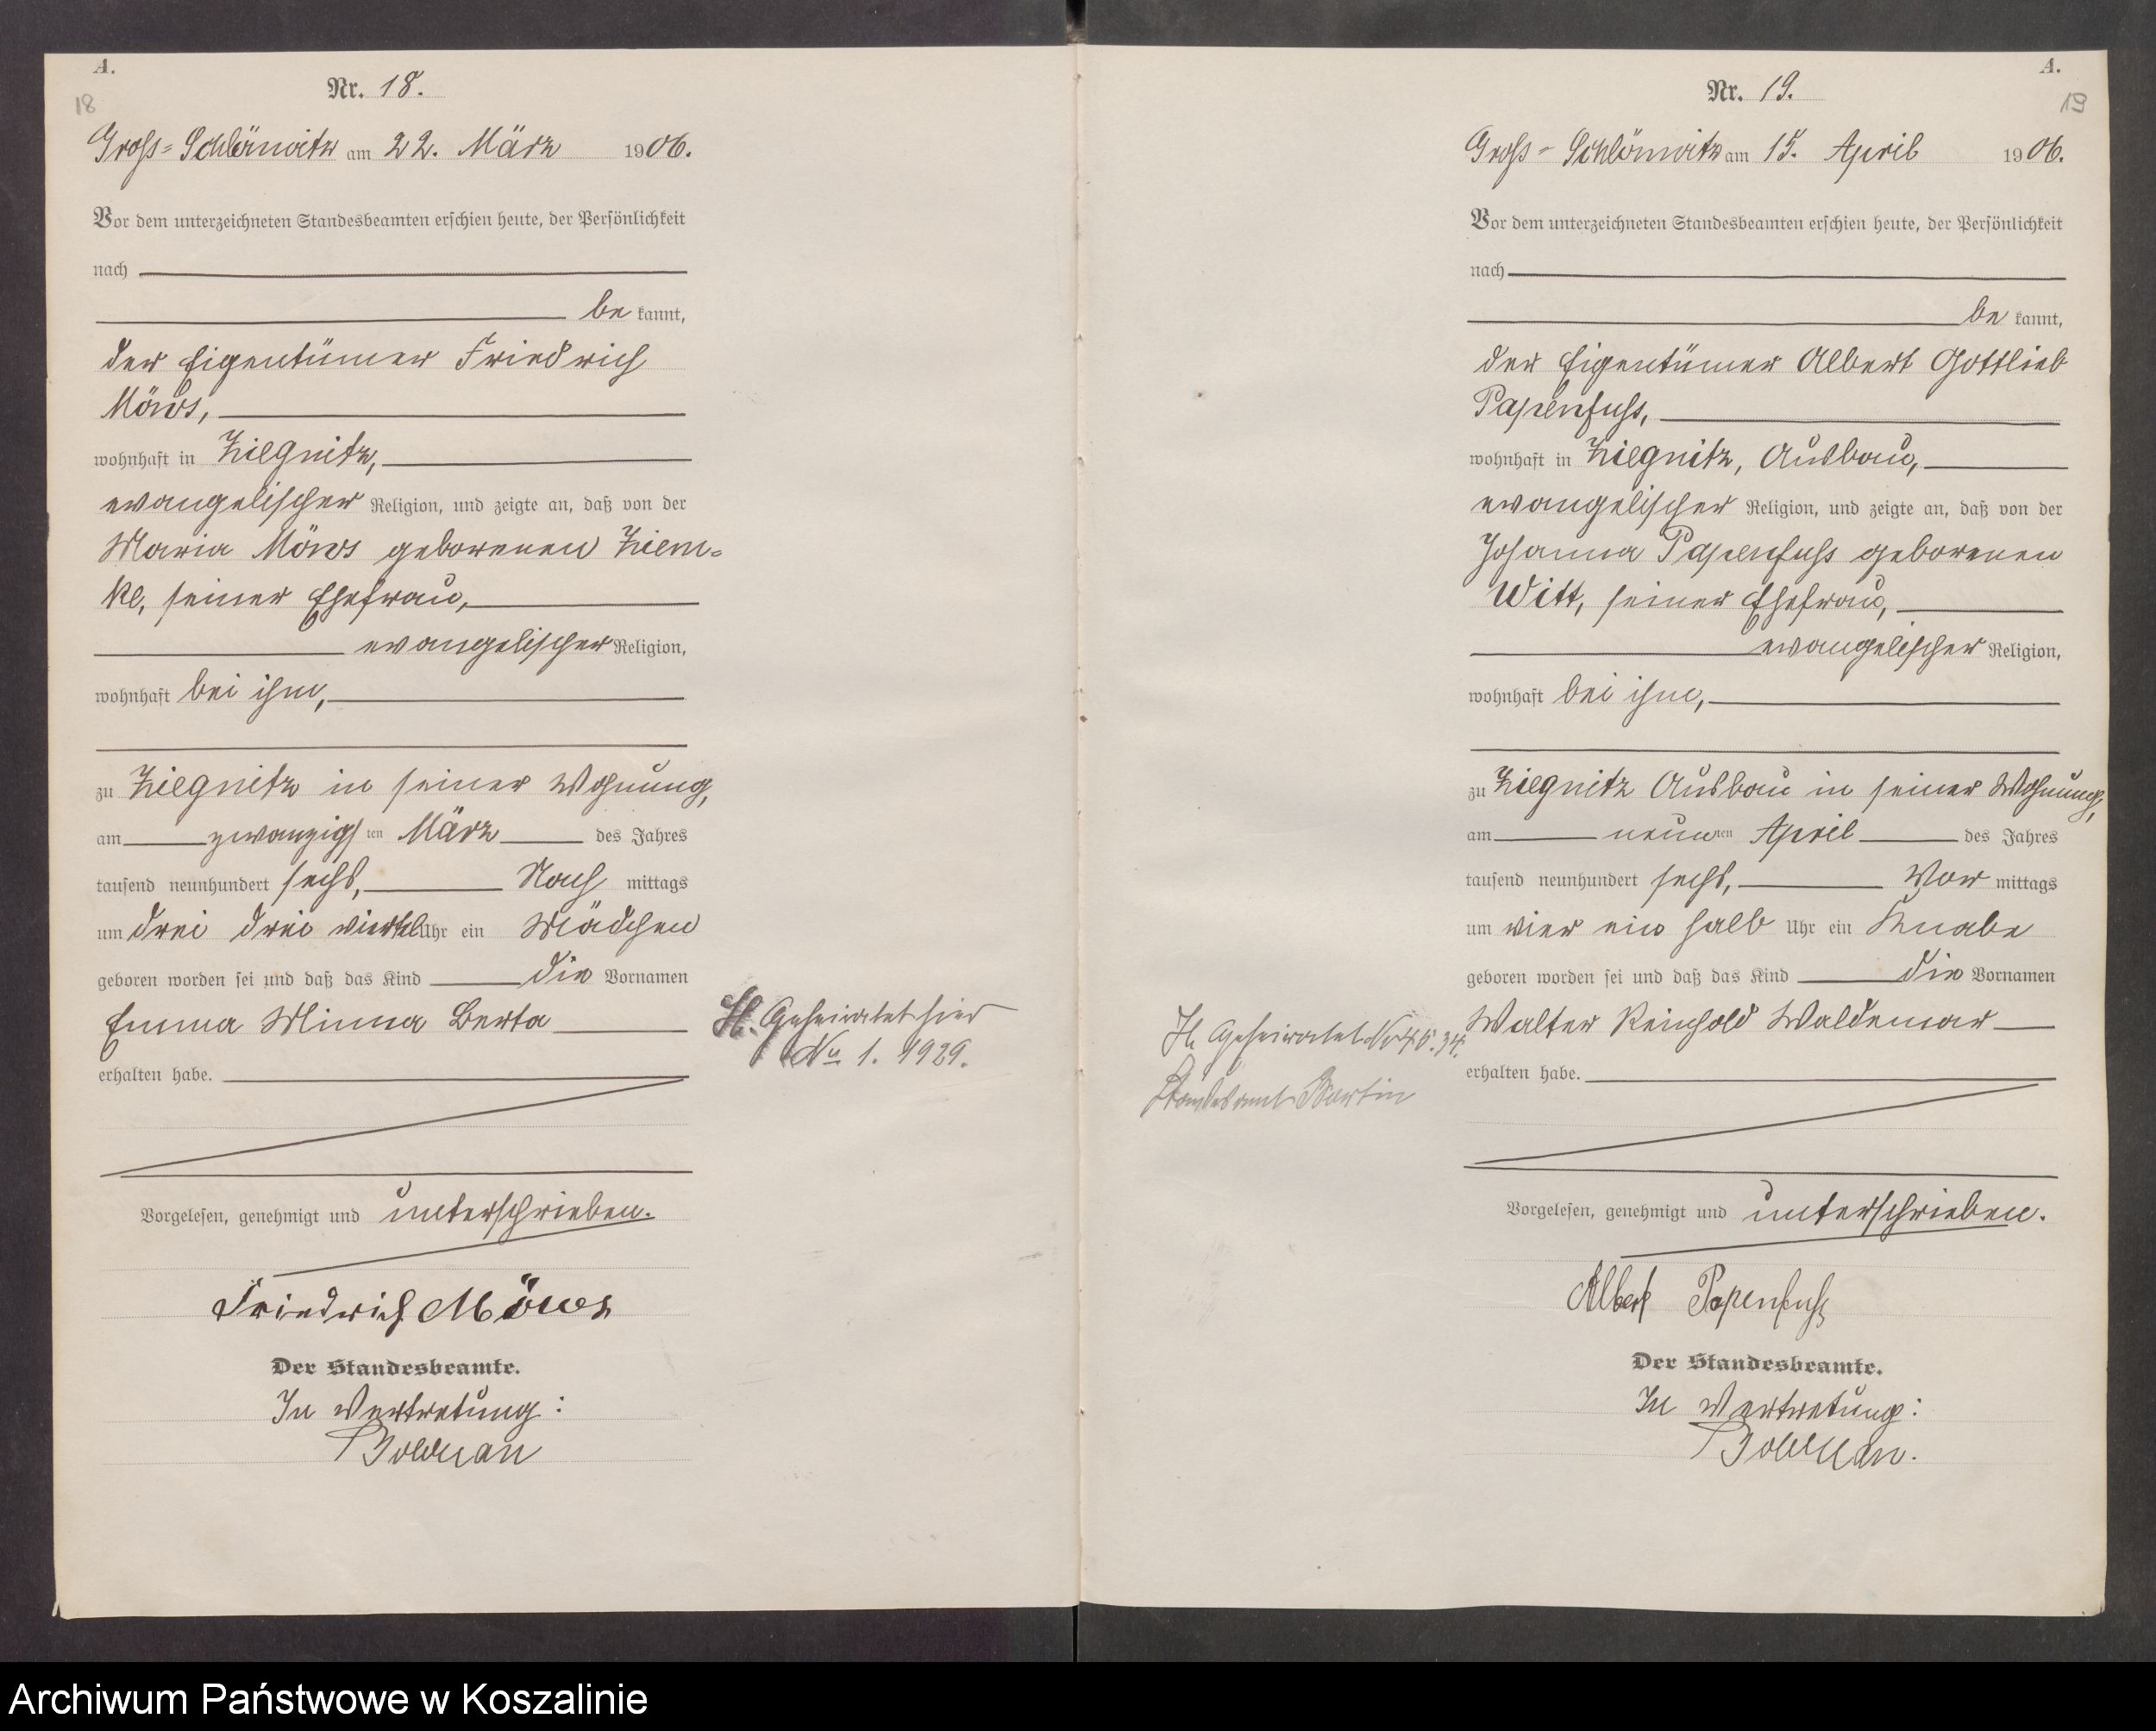 A.
18
Nr. 18.
Gross-Schlönwitz am 22. März 1906.
Vor dem unterzeichneten Standesbeamten erschien heute, der Persönlichkeit
nach
be kannt,
der Eigentümer Friedrich
Möws,
wohnhaft in Ziegnitz,
evangelischer Religion, und zeigte an, daß von der
Maria Möws geborenen Ziem-
ke, seiner Ehefrau,
evangelischer Religion,
wohnhaft bei ihm,
zu Ziegnitz in seiner Wohnung,
am zwanzigsten März des Jahres
tausend neunhundert sechs, Nach mittags
um drei drei viertel Uhr ein Mädchen
geboren worden sei und daß das Kind die Vornamen
Emma Minna Berta
erhalten habe.
H. Geheiratet hier
No 1. 1929.
Vorgelesen, genehmigt und unterschrieben.
Friedrich Möws
Der Standesbeamte.
In Vertretung:
Bolduan
A.
19
Nr. 19.
Gross-Schlönwitz am 15. April 1906.
Vor dem unterzeichneten Standesbeamten erschien heute, der Persönlichkeit
nach
be kannt,
der Eigentümer Albert Gottlieb
Papenfuss,
wohnhaft in Ziegnitz, Ausbau,
evangelischer Religion, und zeigte an, daß von der
Johanna Papenfuss geborenen
Witt, seiner Ehefrau,
evangelischer Religion,
wohnhaft bei ihm,
zu Ziegnitz Ausbau in seiner Wohnung,
am neunten April des Jahres
tausend neunhundert sechs, Vor mittags
um vier ein halb Uhr ein Knabe
geboren worden sei und daß das Kind die Vornamen
Walter Reinhold Waldemar
erhalten habe.
H. Geheiratet
Standesamt
Vorgelesen, genehmigt und unterschrieben.
Albert Papenfuß
Der Standesbeamte.
In Vertretung:
Bolduan.
Archiwum Państwowe w Koszalinie